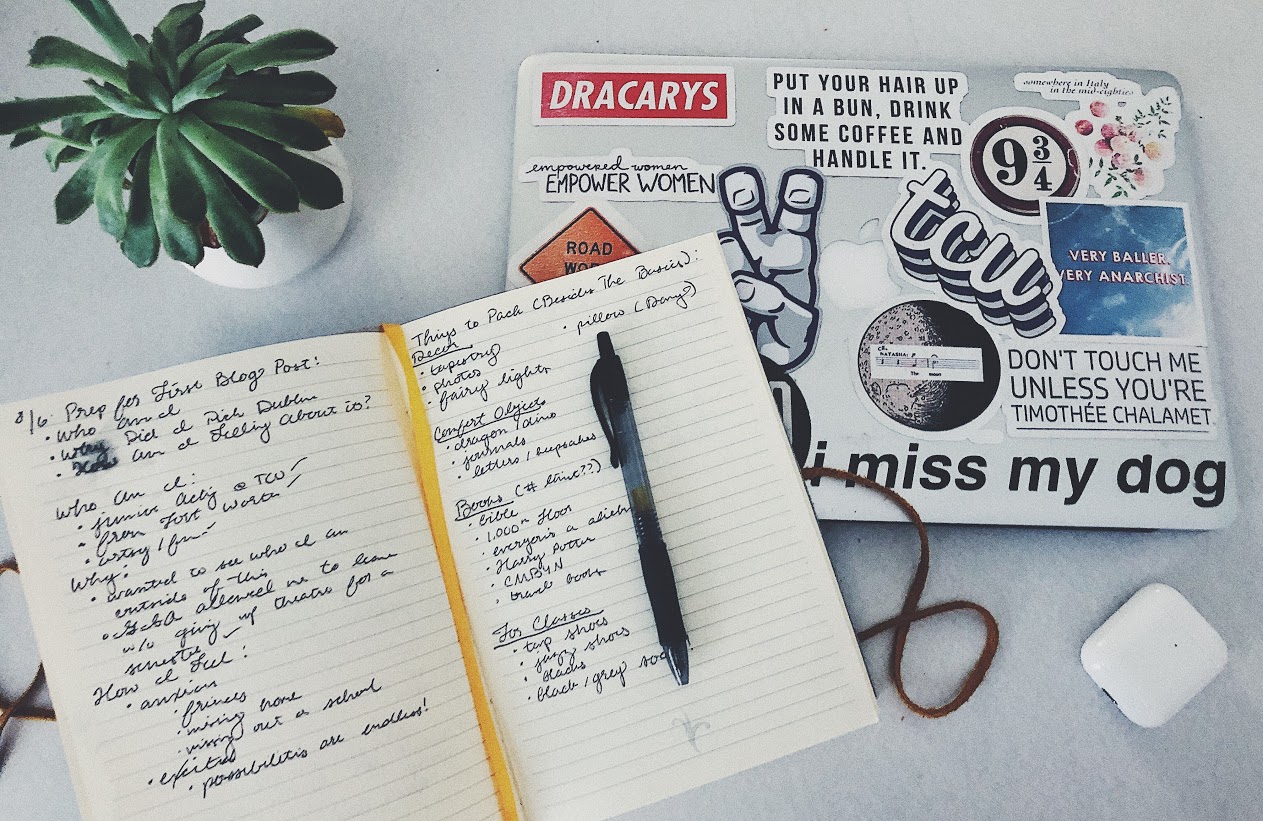 8/6: Prep for First Blog Post:
• Who am I
• Why Did I Pick Dublin
• How am I Feeling About it?
Who Am I:
• junior acting @ TCU ✓
• from Fort Worth ✓
• artsy / fun ✓
Why:
• wanted to see who I am
outside of this
• GSA allowed me to leave
w/o giving up theatre for a
semester ✓
How I Feel:
• anxious
• friends
• missing home
• missing out @ school
• excited
• possibilities are endless!
Things to Pack (Besides The Basics):
Decor
• tapestry
• photos
• fairy lights
• pillow (Dany?)
Comfort Objects
• dragon/dino
• journals
• letters/keepsakes
Books (# limit??)
• bible
• 1,000th Floor
• everyone's a
• Harry Potter
• CMBYN
• travel books
For Classes
• tap shoes
• jazz shoes
• blacks
• black/grey
DRACARYS
PUT YOUR HAIR UP
IN A BUN, DRINK
SOME COFFEE AND
HANDLE IT.
somewhere in Italy
in the mid-eighties
empowered women
EMPOWER WOMEN
9 3/4
ROAD
WO
tcu
VERY BALLER.
VERY ANARCHIST.
NATASHA:
The moon
DON'T TOUCH ME
UNLESS YOU'RE
TIMOTHÉE CHALAMET
i miss my dog